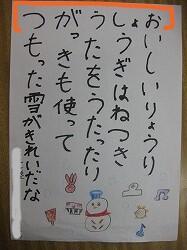 おいしいりょうり
しょうぎはねつき
うたをうたったり
がっきも使って
つもった雪がきれいだな